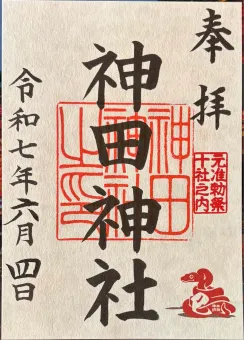 奉拝
元准勅祭
十社之内
神田神社
令和七年六月四日